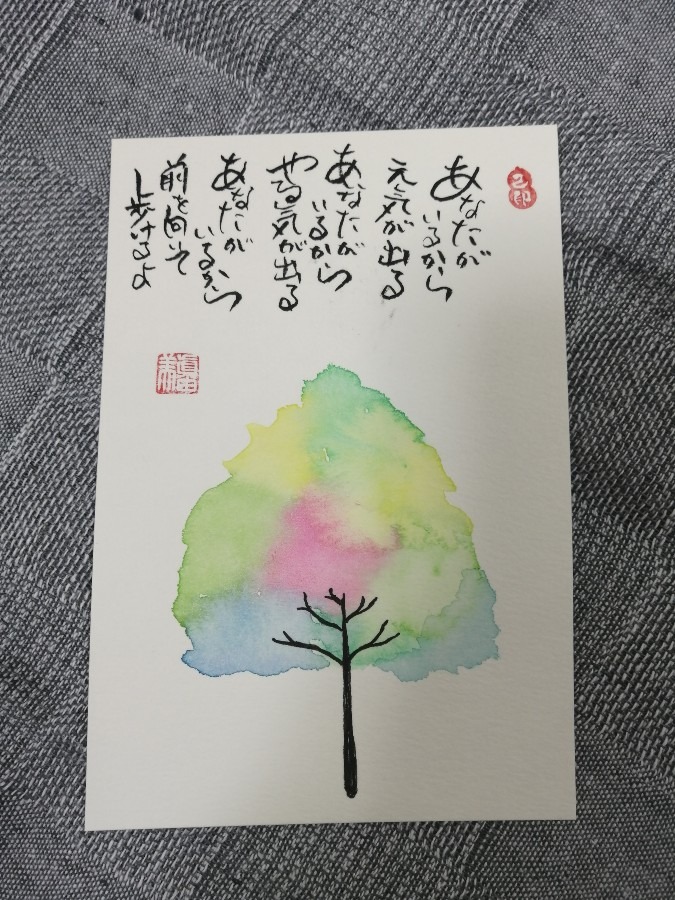 あなたが
いるから
元気が出る
あなたが
いるから
やる気が出る
あなたが
いるから
前を向いて
歩けるよ